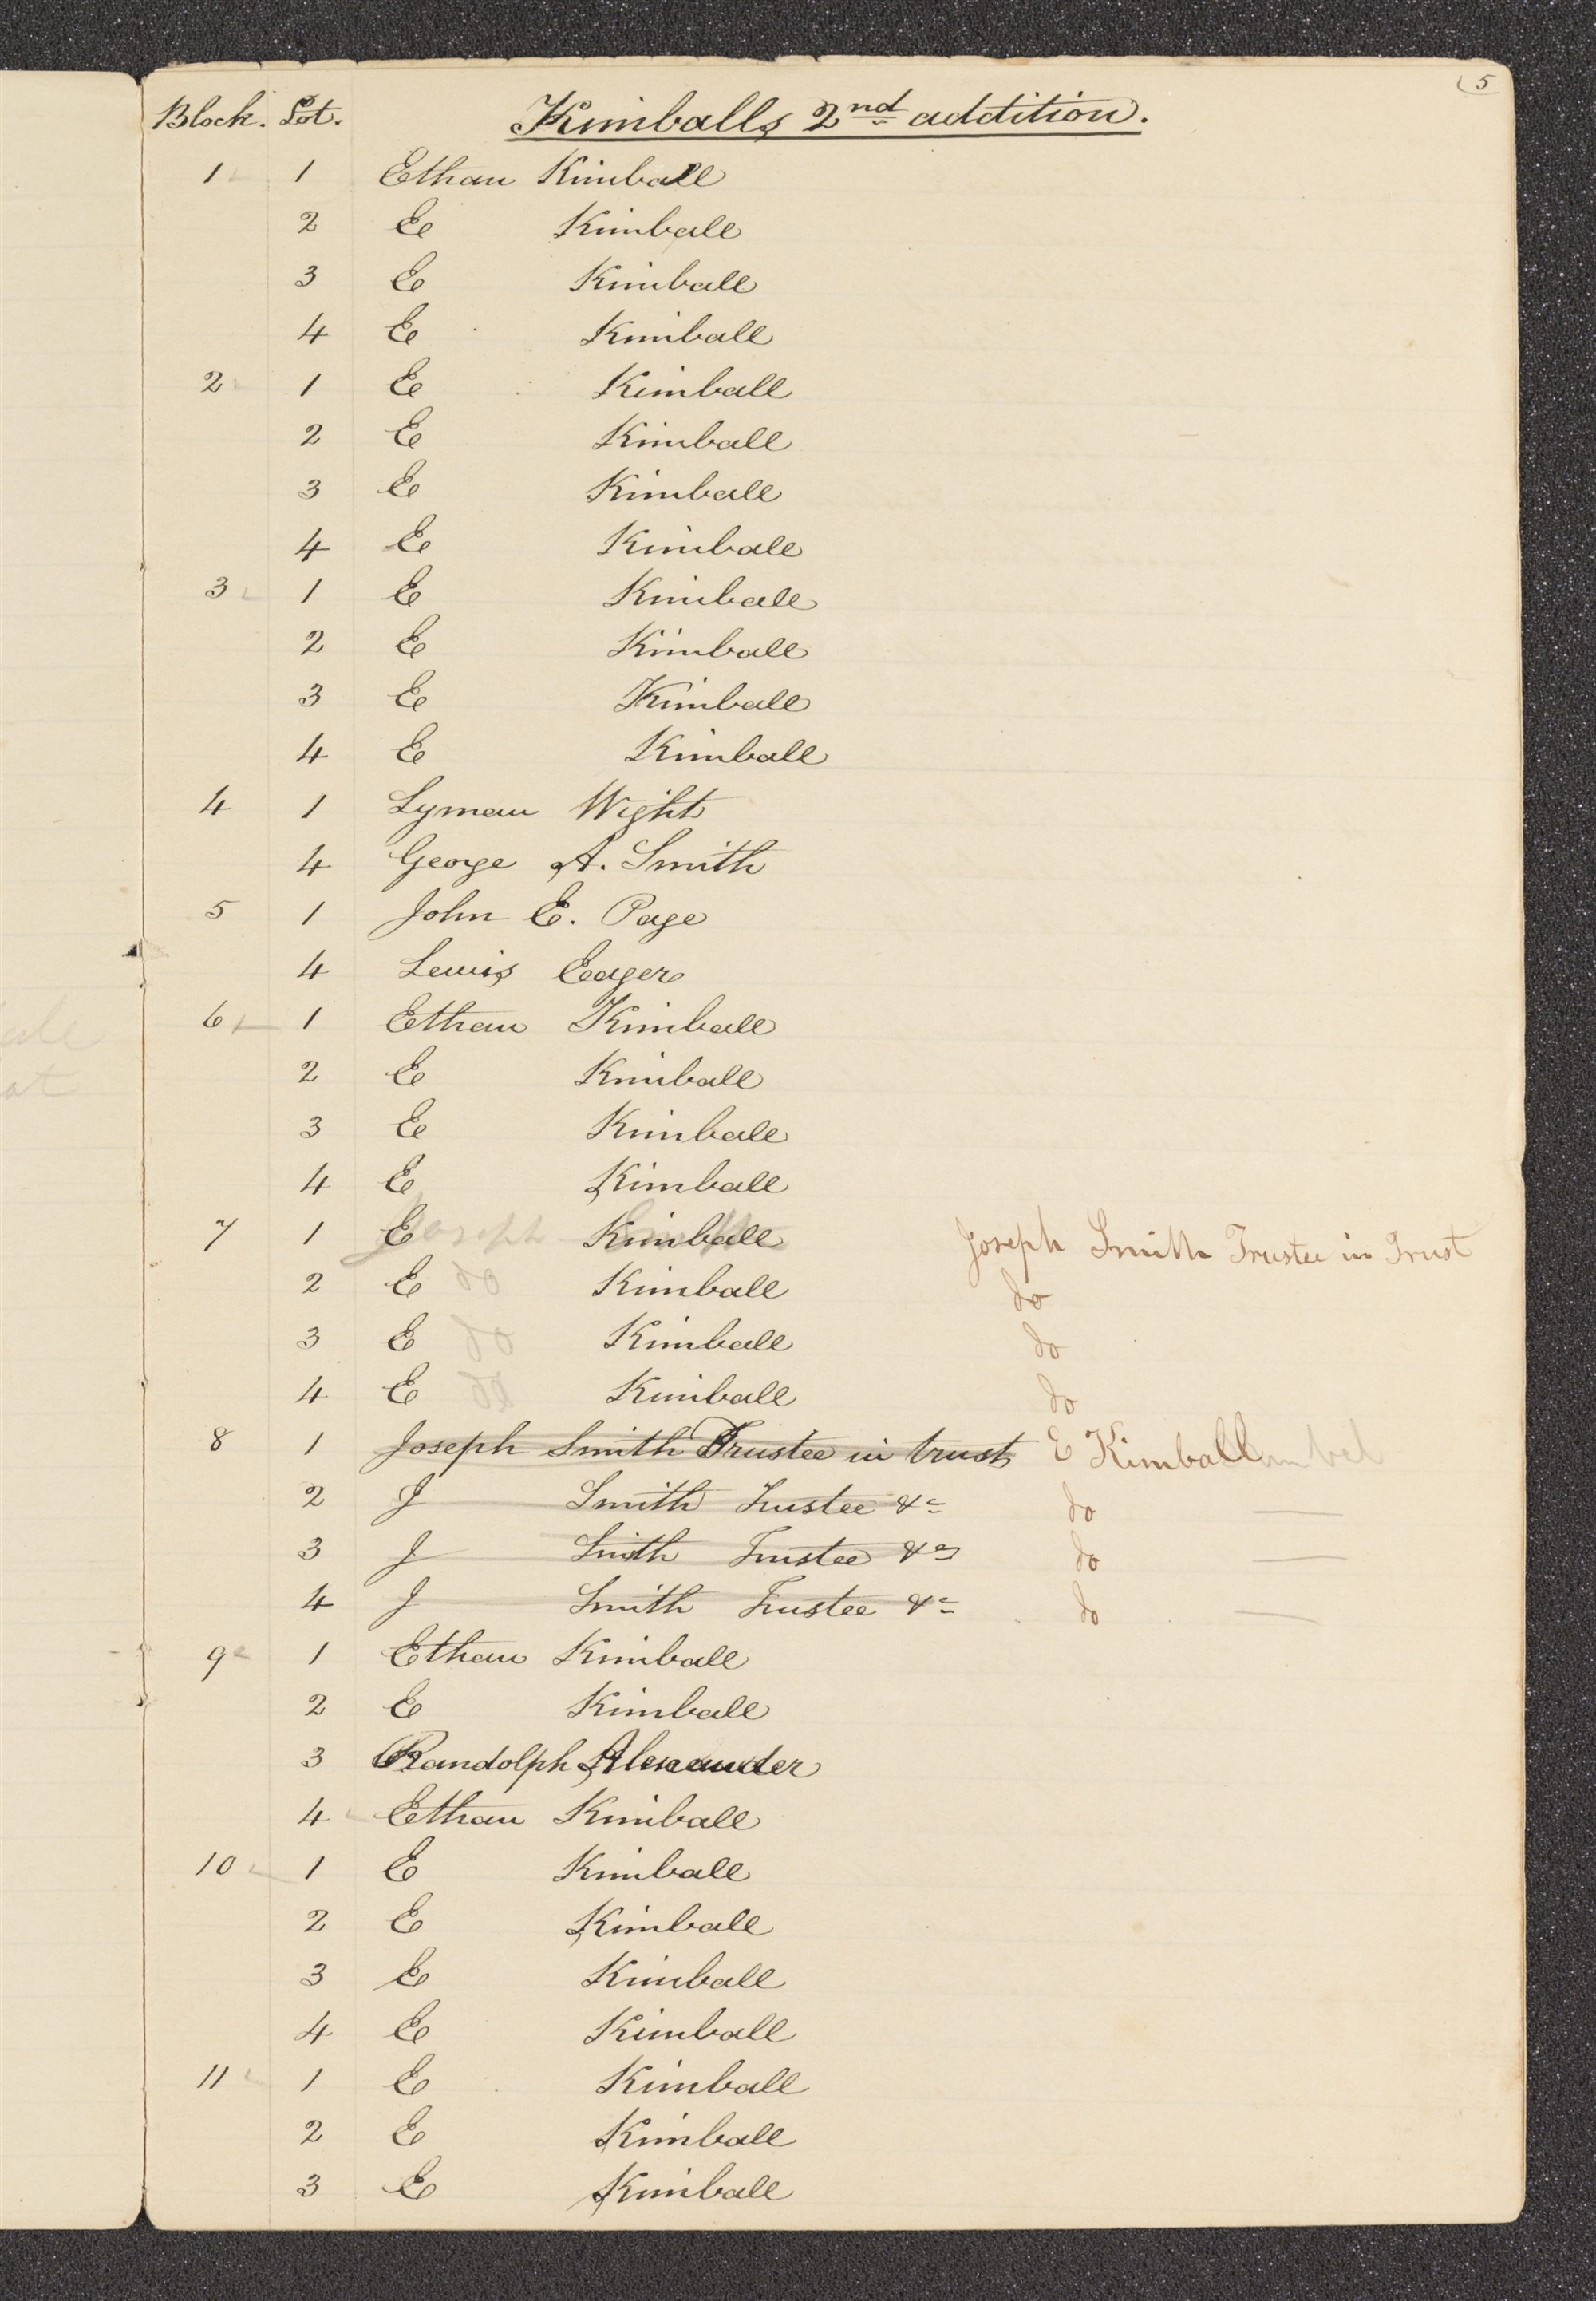 5
Block. Lot. Kimballs 2nd addition.
1 1 Ethan Kimball
2 E Kimball
3 E Kimball
4 E Kimball
2 1 E Kimball
2 E Kimball
3 E Kimball
4 E Kimball
3 1 E Kimball
2 E Kimball
3 E Kimball
4 E Kimball
4 1 Lyman Wight
4 George A. Smith
5 1 John E. Page
4 Lewis Eager
6 1 Ethan Kimball
2 E Kimball
3 E Kimball
4 E Kimball
7 1 E Joseph Kimball Joseph Smith Trustee in Trust
2 E do Kimball do
3 E do Kimball do
4 E do Kimball do
8 1 Joseph Smith Trustee in trust E Kimball
2 J Smith Trustee &c do —
3 J Smith Trustee &c do —
4 J Smith Trustee &c do —
9 1 Ethan Kimball
2 E Kimball
3 Randolph Alexander
4 Ethan Kimball
10 1 E Kimball
2 E Kimball
3 E Kimball
4 E Kimball
11 1 E Kimball
2 E Kimball
3 E Kimball